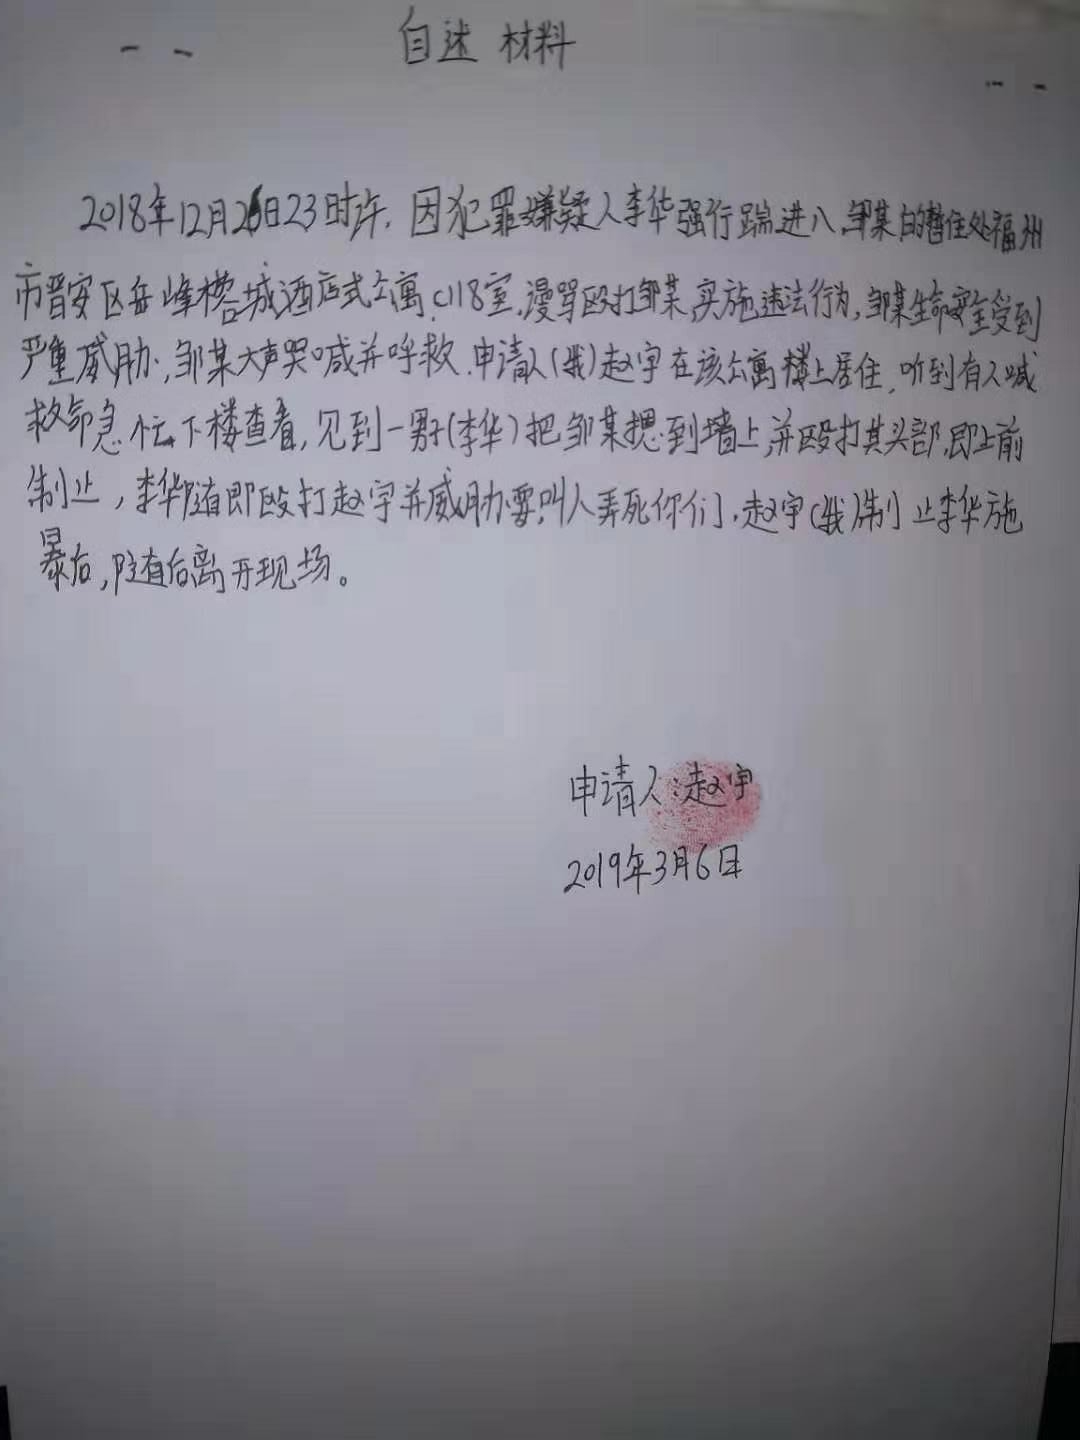 自述 材料
2018年12月26日23时许，因犯罪嫌疑人李华强行踹进入邹某的暂住处福州
市晋安区岳峰榕城酒店式公寓C118室，漫骂殴打邹某，实施违法行为，邹某生命安全受到
严重威胁，邹某大声哭喊并呼救，申请人(我)赵宇在该公寓楼上居住，听到有人喊
救命急忙下楼查看，见到一男子(李华)把邹某摁到墙上，并殴打其头部，即上前
制止，李华随即殴打赵宇并威胁要叫人弄死你们，赵宇(我)制止李华施
暴后，随后离开现场。
申请人：赵宇
2019年3月6日